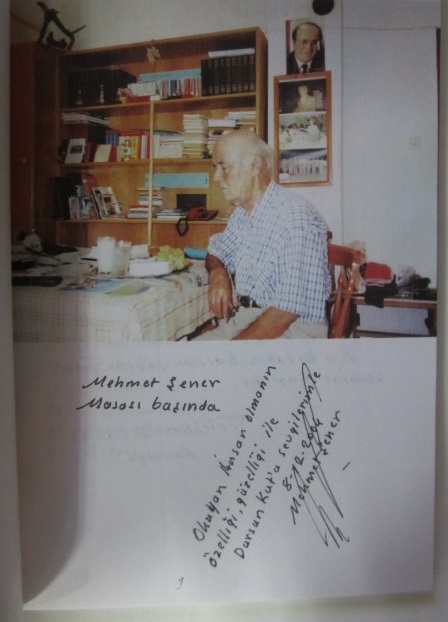 Mehmet Şener
Masası başında
Okuyan insan olmanın
özelliği, güzelliği ile
Dursun Kut'a sevgilerimle
8.12.2004
Mehmet Şener